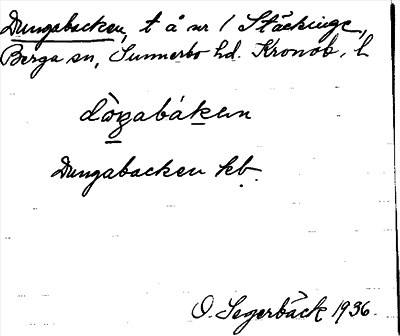 Dungabacken, t å nr 1 Stäckinge,
Berga sn, Sunnerbo hd. Kronob. l
dòŋabákɛn
Dungabacken kb.
O. Segerbäck 1936.